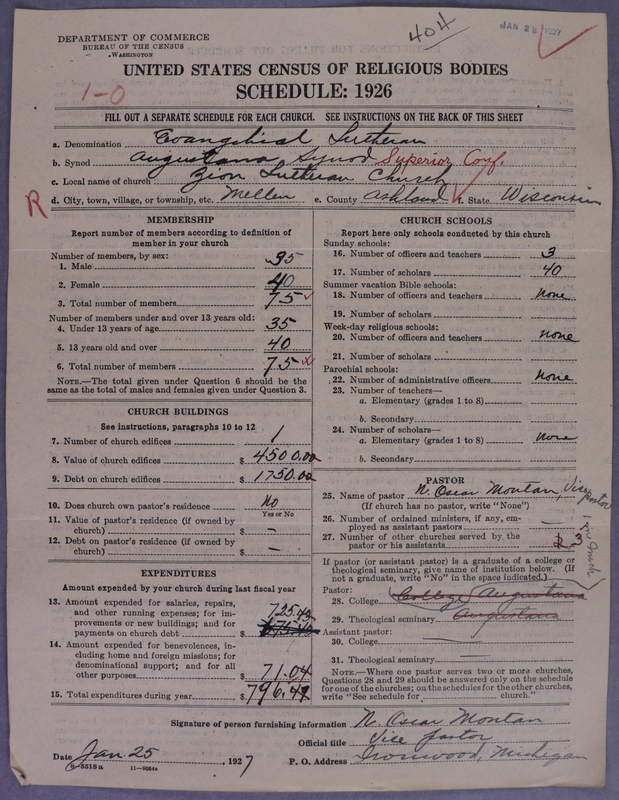 404
JAN 28 1927
DEPARTMENT OF COMMERCE
BUREAU OF THE CENSUS
WASHINGTON
UNITED STATES CENSUS OF RELIGIOUS BODIES
1-0
SCHEDULE: 1926
FILL OUT A SEPARATE SCHEDULE FOR EACH CHURCH. SEE INSTRUCTIONS ON THE BACK OF THIS SHEET
a. Denomination Evangelical Lutheran
b. Synod Augustana Synod Superior Conf.
c. Local name of church Zion Lutheran Church
R d. City, town, village, or township, etc. Mellen e. County Ashland f. State Wisconsin
MEMBERSHIP
Report number of members according to definition of
member in your church
Number of members, by sex:
1. Male 35
2. Female 40
3. Total number of members 75
Number of members under and over 13 years old:
4. Under 13 years of age 35
5. 13 years old and over 40
6. Total number of members 75
NOTE.—The total given under Question 6 should be the
same as the total of males and females given under Question 3.
CHURCH BUILDINGS
See instructions, paragraphs 10 to 12
7. Number of church edifices 1
8. Value of church edifices $ 4500.00
9. Debt on church edifices $ 1750.00
10. Does church own pastor's residence? No
Yes or No
11. Value of pastor's residence (if owned by
church) $ —
12. Debt on pastor's residence (if owned by
church) $ —
EXPENDITURES
Amount expended by your church during last fiscal year
13. Amount expended for salaries, repairs,
and other running expenses; for im-
provements or new buildings; and for
payments on church debt $ 725.45
14. Amount expended for benevolences, in-
cluding home and foreign missions; for
denominational support; and for all
other purposes $ 71.04
15. Total expenditures during year $ 796.49
CHURCH SCHOOLS
Report here only schools conducted by this church
Sunday schools:
16. Number of officers and teachers 3
17. Number of scholars 40
Summer vacation Bible schools:
18. Number of officers and teachers none
19. Number of scholars
Week-day religious schools:
20. Number of officers and teachers none
21. Number of scholars
Parochial schools:
22. Number of administrative officers none
23. Number of teachers—
a. Elementary (grades 1 to 8)
b. Secondary
24. Number of scholars—
a. Elementary (grades 1 to 8) none
b. Secondary
PASTOR
25. Name of pastor N. Oscar Montan, Vice pastor
(If church has no pastor, write "None")
26. Number of ordained ministers, if any, em-
ployed as assistant pastors —
27. Number of other churches served by the
pastor or his assistants 3
If pastor (or assistant pastor) is a graduate of a college or
theological seminary, give name of institution below. (If
not a graduate, write "No" in the space indicated.)
Pastor:
28. College College Augustana
29. Theological seminary Augustana
Assistant pastor:
30. College
31. Theological seminary
NOTE.—Where one pastor serves two or more churches,
Questions 28 and 29 should be answered only on the schedule
for one of the churches; on the schedules for the other churches,
write "See schedule for church."
Signature of person furnishing information N. Oscar Montan
Official title Vice pastor
Date Jan 25, 1927 P. O. Address Ironwood, Michigan
8-5518a 11-9064a